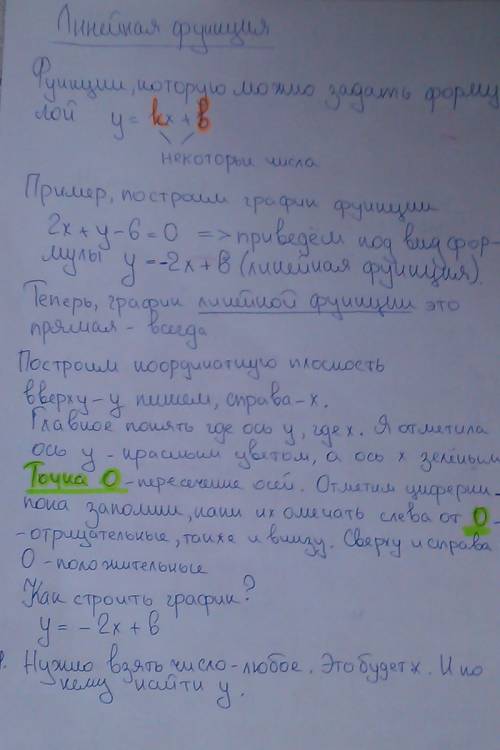 Линейная функция
Функции, которую можно задать форму
лой y = kx + b
некоторые числа
Пример, построим график функции
2x + y - 6 = 0 => приведём под вид фор-
мулы y = -2x + b (линейная функция).
Теперь, график линейной функции это
прямая - всегда
Построим координатную плоскость
вверху - y пишем, справа - x.
Главное понять где ось y, где x. Я отметила
ось y - красным цветом, а ось x зелёным
Точка O - пересечение осей. Отметим циферки.
пока запомним, как их омечать слева от O -
- отрицательные, также и внизу. Сверху и справа
O - положительные
Как строить график?
y = - 2x + b
Нужно взять число - любое. Это будет x. И по
нему найти y.